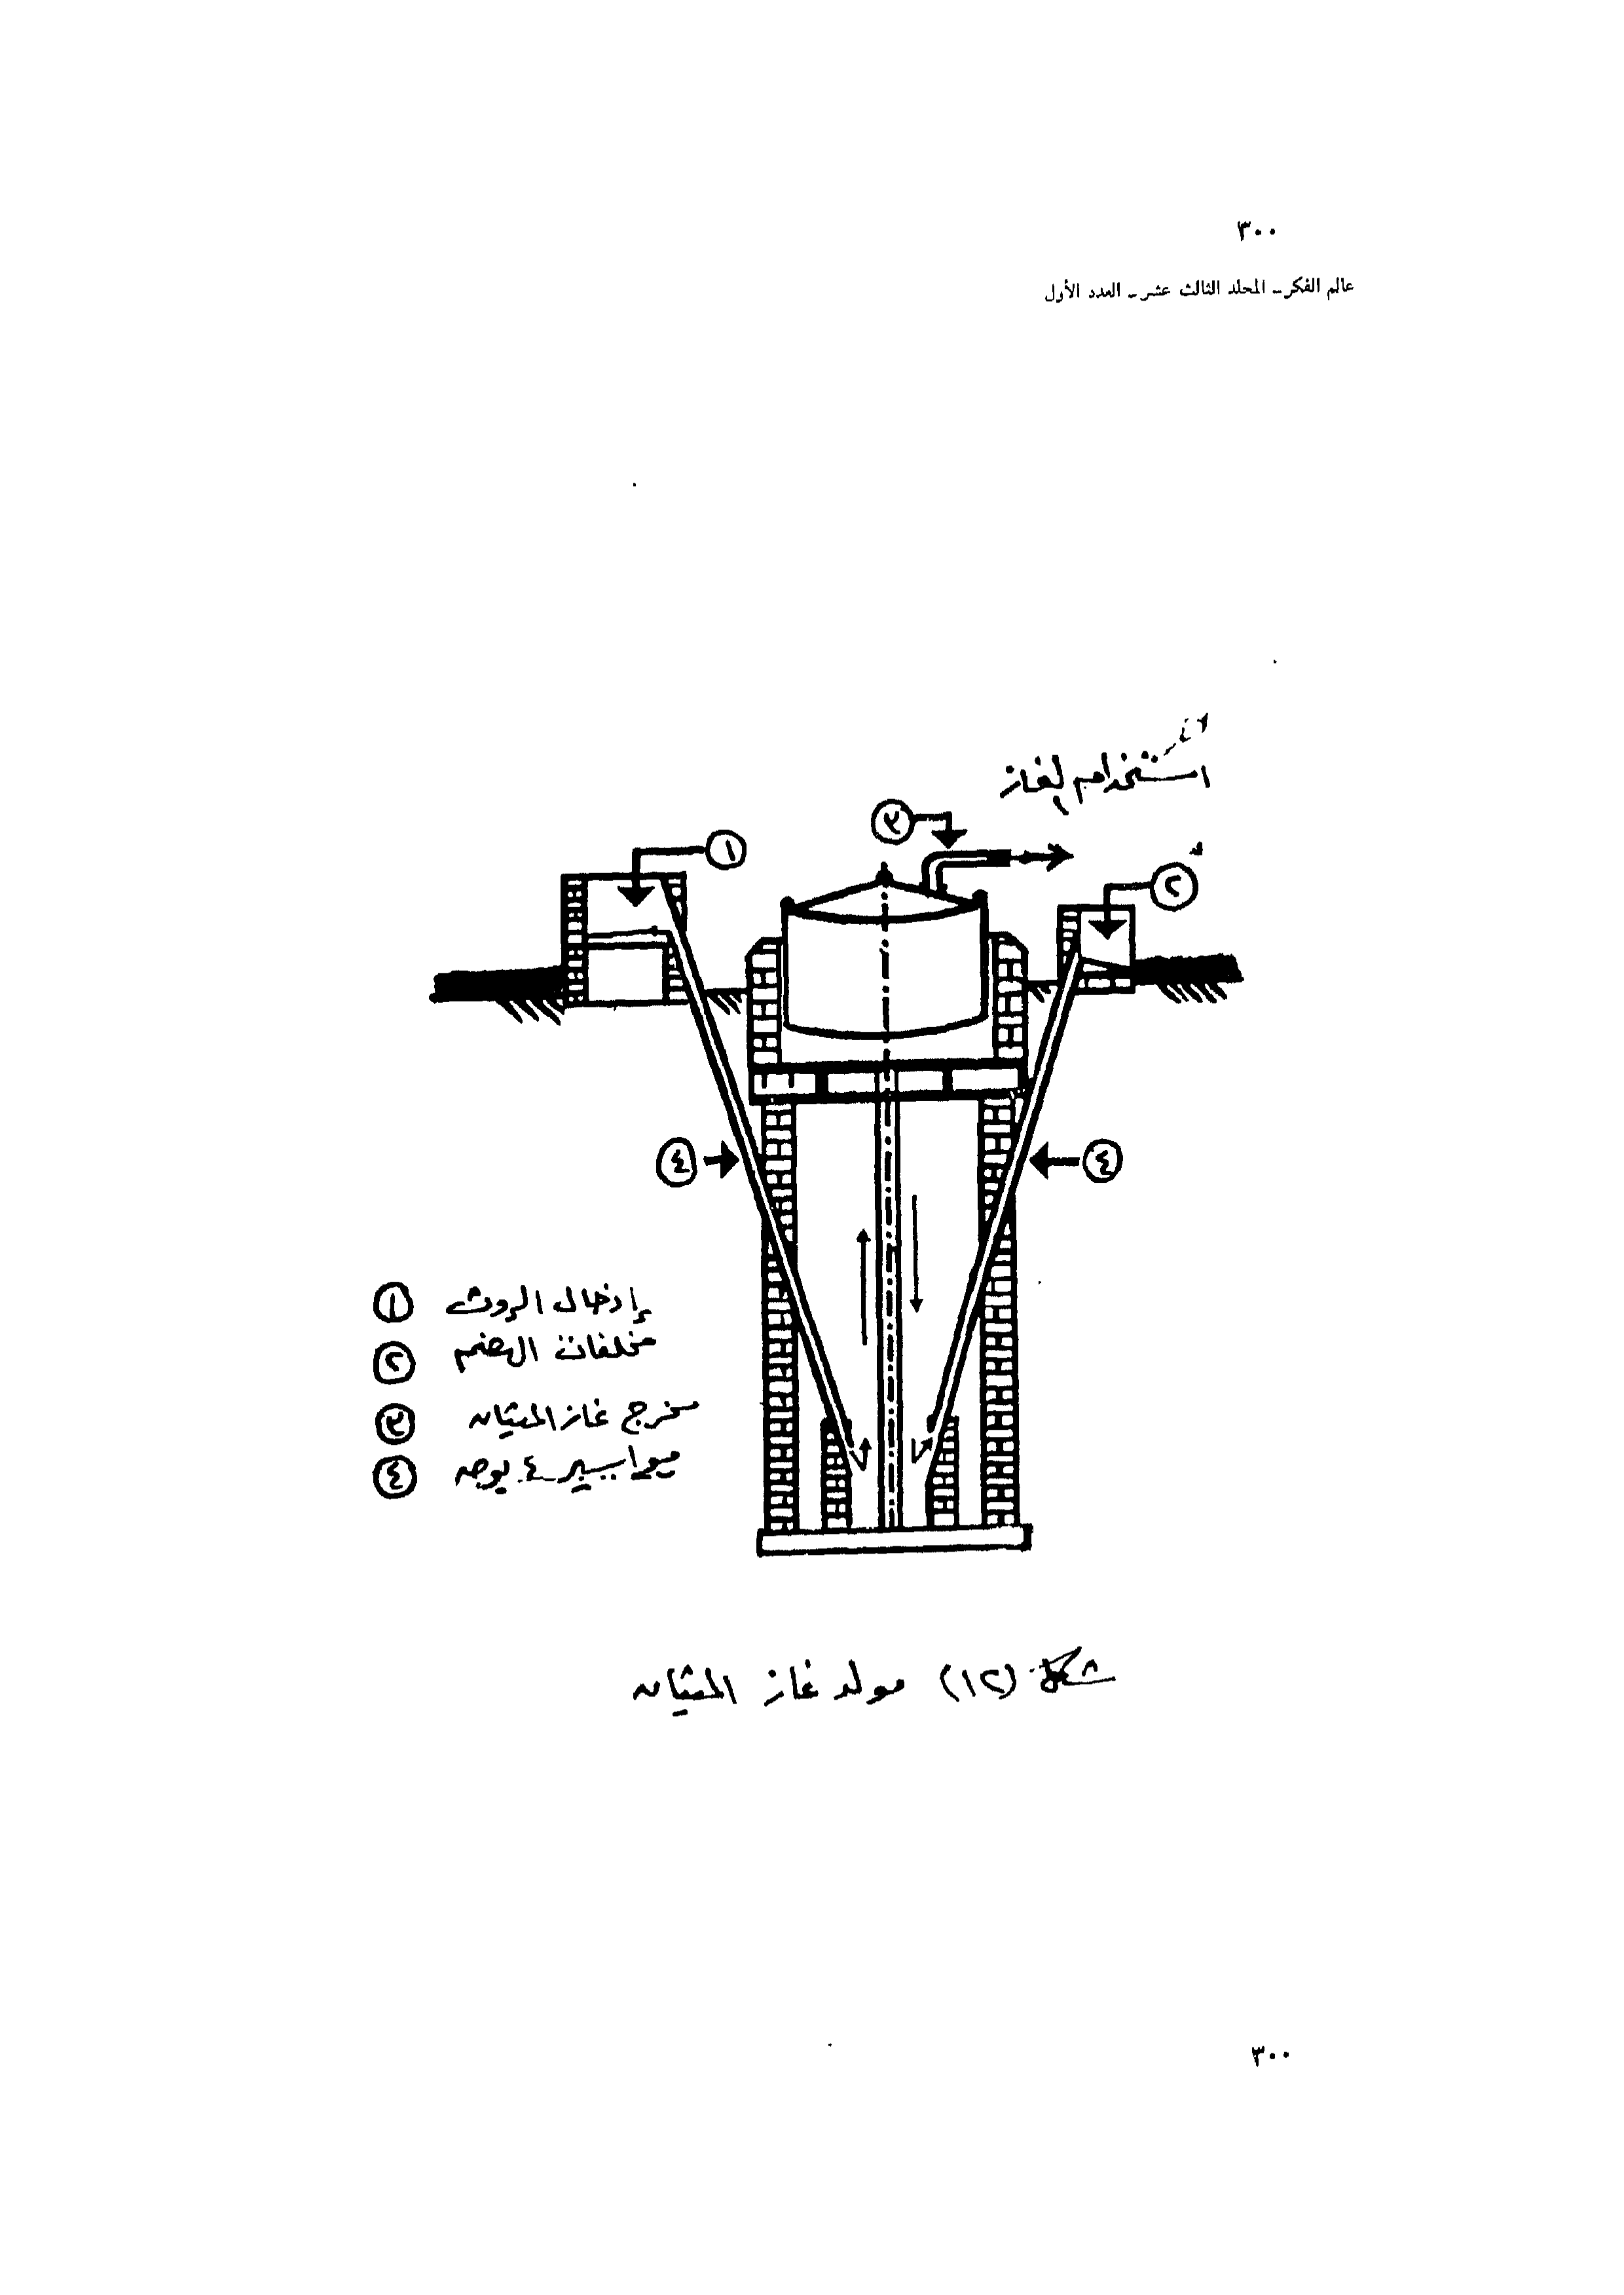 ٣٠٠
عالم الفكر - المجلد الثالث عشر - العدد الأول
استخدام الغاز
١
٣
٢
٤
٤
١ إدخال الروث
٢ مخلفات الهضم
٣ مخرج غاز الميثان
٤ مواسير ٤ بوصه
شكل (١٢) مولد غاز الميثان
٣٠٠